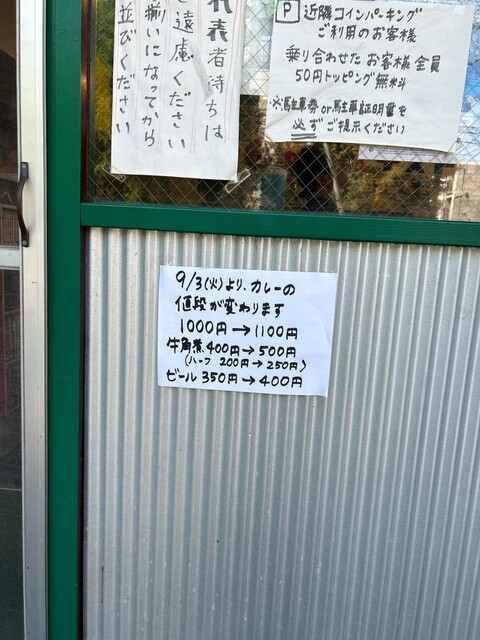 者待ちは
ご遠慮ください
揃いになってから
並びください
P 近隣コインパーキング
ご利用のお客様
乗り合わせたお客様全員
50円トッピング無料
※駐車券or駐車証明書を
必ずご提示ください
9/3(火)より、カレーの
値段が変わります
1000円→1100円
牛角煮400円→500円
(ハーフ 200円→250円)
ビール 350円→400円